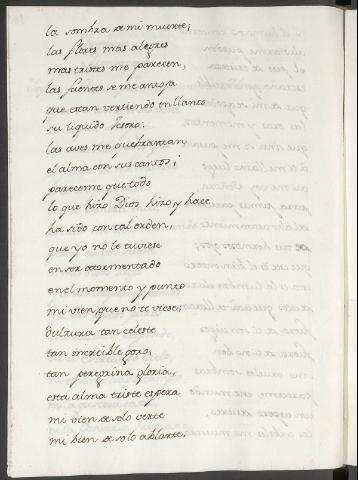 la sombra de mi muerte;
las flores mas alegres
mas tristes me parecen,
las fuentes se me antoja
que estan vertiendo en llanto
su liquido tesoro:
las aves me quebrantan
el alma con sus cantos;
pareceme que todo
lo que hizo Dios hizo y hace
ha sido con tal orden,
que yo no le tuviese
en ser atormentado
en el momento y punto
mi vien, que no te viese;
dulzura tan celeste
tan increible gozo,
tan peregrina gloria,
esta alma triste espera
mi vien de solo verte
mi bien de solo ablarte;